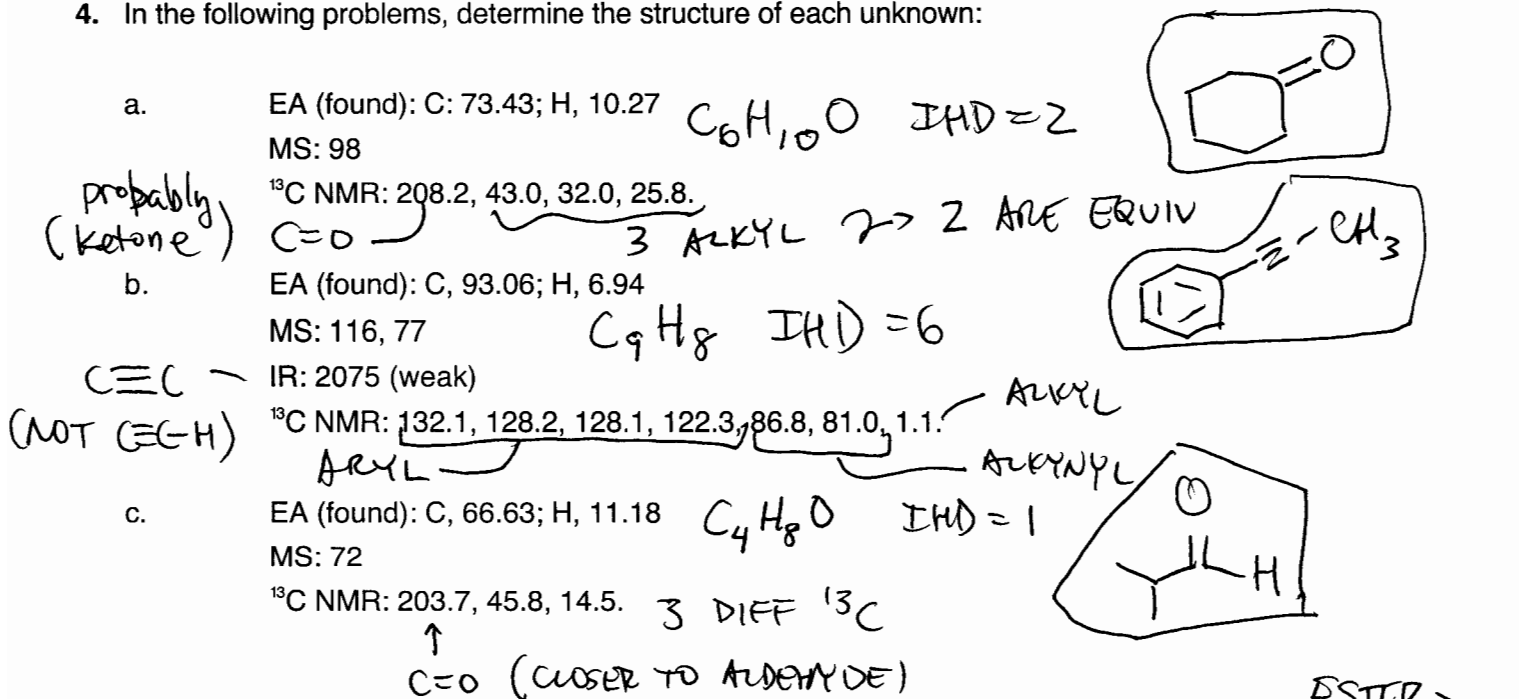 4. In the following problems, determine the structure of each unknown:
O
a. EA (found): C: 73.43; H, 10.27 C6H10O IHD = 2
MS: 98
probably (ketone) ¹³C NMR: 208.2, 43.0, 32.0, 25.8.
C=O 3 ALKYL 2 ARE EQUIV
CH3
b. EA (found): C, 93.06; H, 6.94
MS: 116, 77 C9H8 IHD = 6
C≡C IR: 2075 (weak)
ALKYL
(NOT C≡C-H) ¹³C NMR: 132.1, 128.2, 128.1, 122.3, 86.8, 81.0, 1.1.
ARYL ALKYNYL
O
c. EA (found): C, 66.63; H, 11.18 C4H8O IHD = 1
MS: 72
H
¹³C NMR: 203.7, 45.8, 14.5. 3 DIFF ¹³C
C=O (CLOSER TO ALDEHYDE)